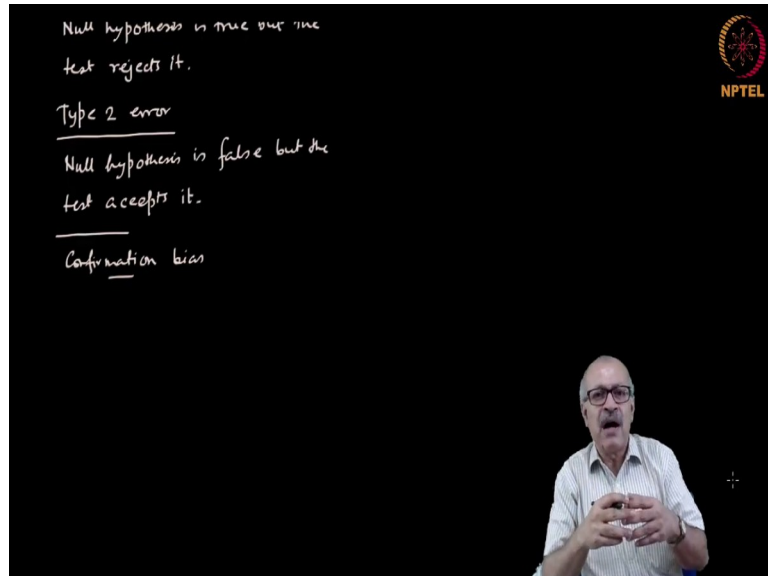 Null hypothesis is true but the
test rejects it.
NPTEL
Type 2 error
Null hypothesis is false but the
test accepts it.
Confirmation bias